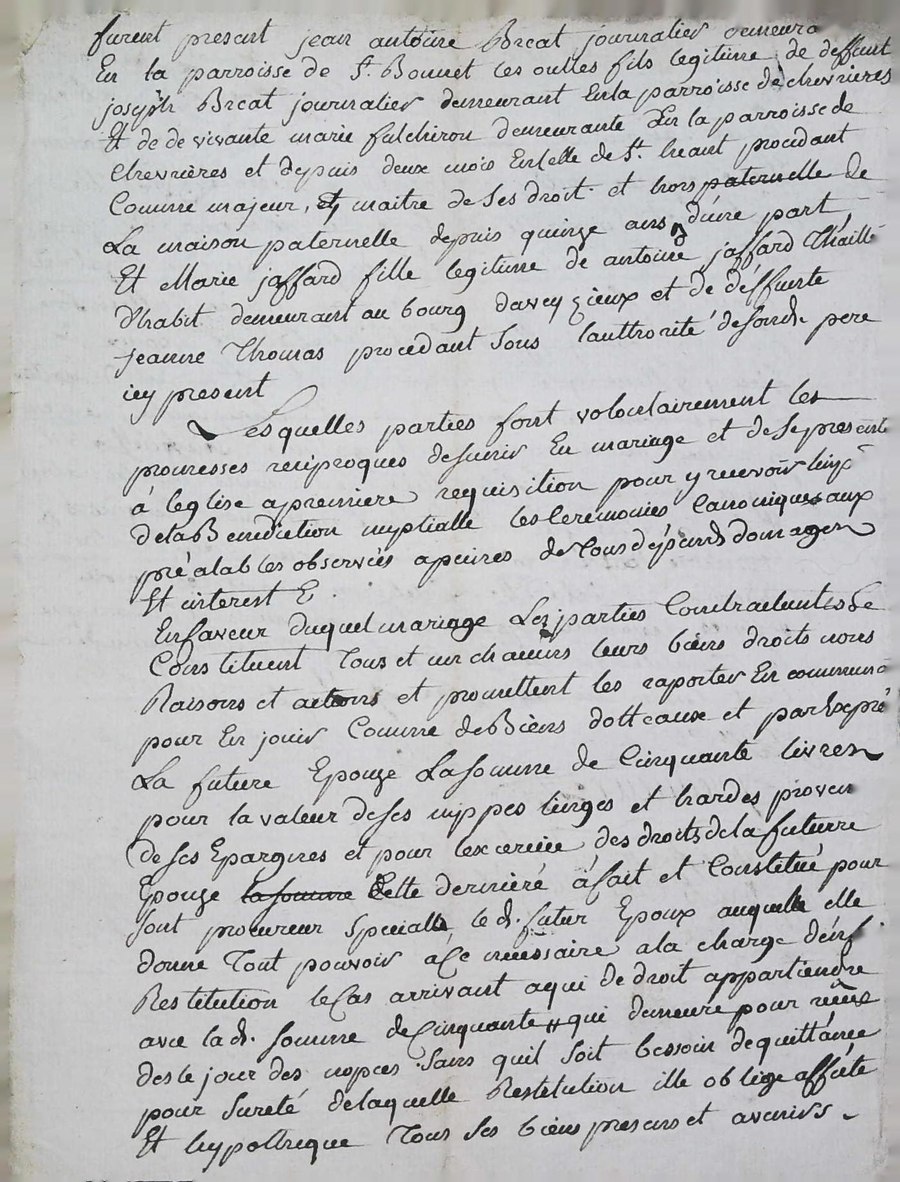 furent present jean antoine Breat journalier demeura
En la parroisse de St. Bonnet les oulles fils legitime de deffunt
joseph Breat journalier demeurant En la parroisse de chevrieres
Et de de vivante marie fulchiron demeurante En la parroisse de
chevrières et depuis deux mois En celle de St. heant procedant
Comme majeur, et maitre de ses droit. et hors paternelle de
La maison paternelle depuis quinze ans d'une part
Et Marie jaffard fille legitime de antoine jaffard Thaille
d'habit demeurant au bourg daveyzieux et de deffunte
jeanne Thomas procedant sous l'authorité de sond. pere
icy present
Lesquelles parties font volontairement les
promesses reciproques de sunir En mariage et de se presente
á leglise a premiere requisition pour y recevoir
de la Benediction nuptialle les Ceremonies Canoniques aux
préalables observées apeines de tous dépends domages
Et interest
En faveur duquel mariage Les parties Contractantes Se
Constituent Tous et un chacuns leurs biens droits noms
Raisons et actions et promettent les raporter En commun
pour En jouir Comme de Biens dotteaux et par Expré
La future Epouze La somme de Cinquante livres
pour la valeur de ses nippes linges et hardes proven
de ses Epargnes et pour lexcercice des droits de la futurre
Epouze la somme Cette derniéré á fait et Constitué pour
sont procureur specialle, le d. futur Epoux auquelle elle
donne Tout pouvoir a Ce necessaire a la charge d'en f
Restitution le Cas arrivant a qui de droit appartiendre
avec la d. somme de Cinquante # qui demeure pour
des le jour des nopces sans quil soit bessoin de quittance
pour sureté de laquelle Restitution ille oblige affecte
Et hypotheque Tous ses biens presens et avenirs